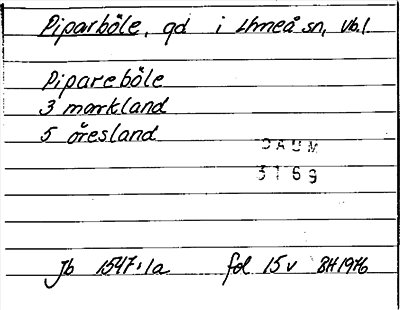 Piparböle, gd i Umeå sn, Vb.l.
Pipareböle
3 markland
5 öresland
DAUM
3169
Jb 1547:1a fol 15v BH 1976